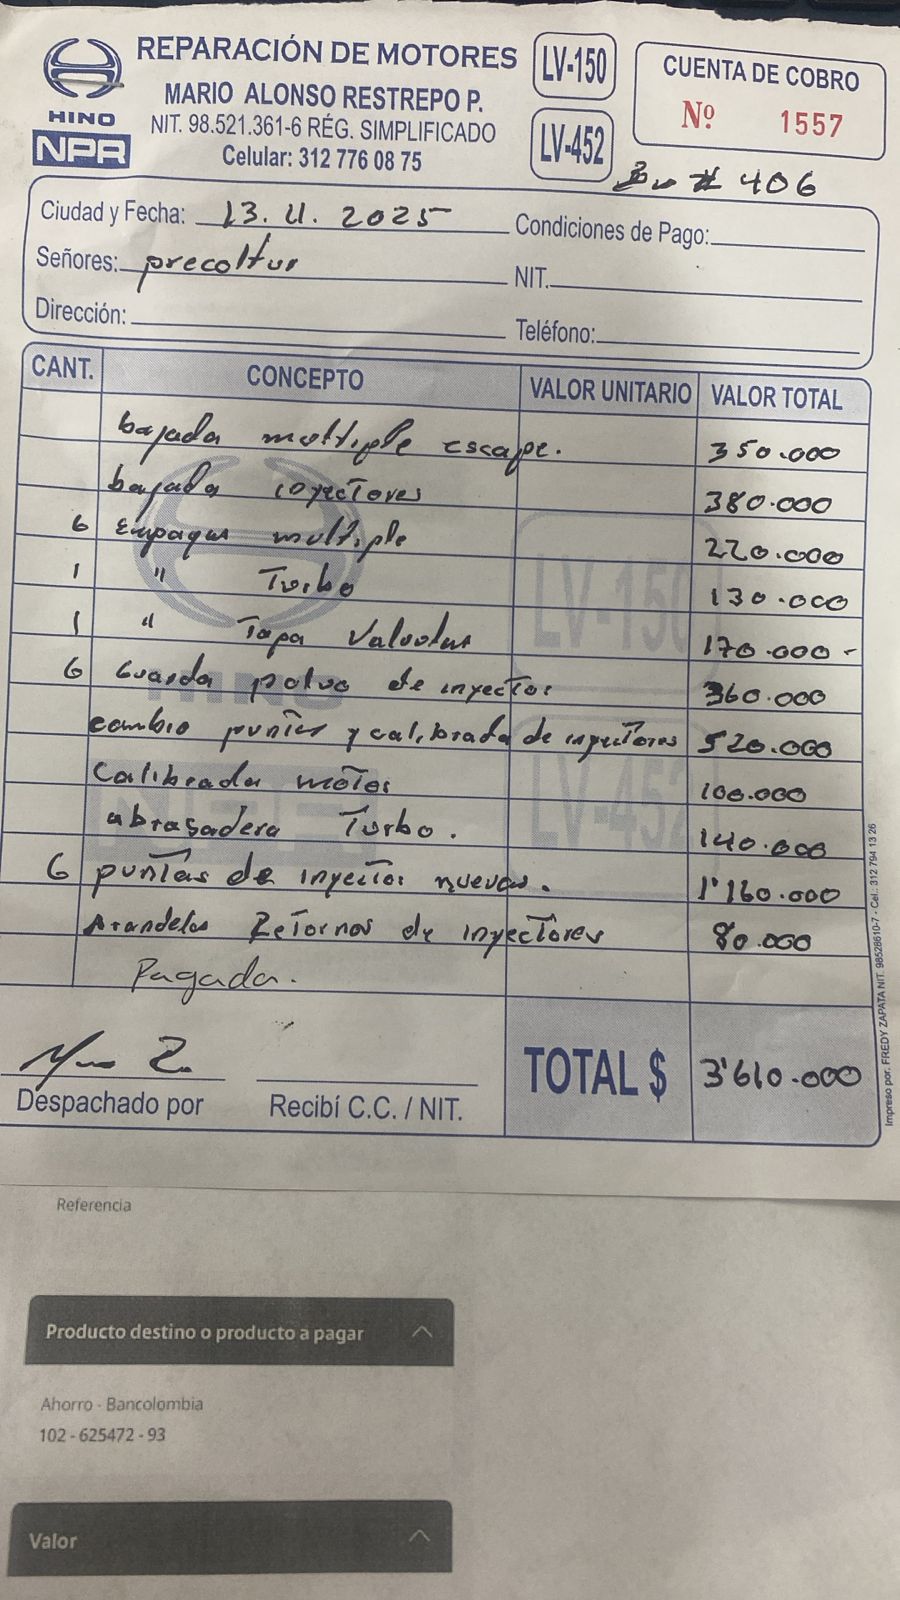 HINO
NPR
REPARACIÓN DE MOTORES
MARIO ALONSO RESTREPO P.
NIT. 98.521.361-6 RÉG. SIMPLIFICADO
Celular: 312 776 08 75
LV-150
LV-452
CUENTA DE COBRO
Nº 1557
# 406
Ciudad y Fecha: 13. 11. 2025 Condiciones de Pago:
Señores: precoltur NIT.
Dirección: Teléfono:
CANT. CONCEPTO VALOR UNITARIO VALOR TOTAL
bajada multiple escape. 350.000
bajada inyectores 380.000
6 Empaques multiple 220.000
1 " Turbo 130.000
1 " Tapa Valvulas 170.000-
6 Guarda polvo de inyector 360.000
cambio puntas y calibrada de inyectores 520.000
Calibrada motor 100.000
abrasadera Turbo. 140.000
6 puntas de inyector nuevas. 1'160.000
Arandelas Retornos de inyectores 80.000
Pagada.
TOTAL $ 3'610.000
Despachado por Recibí C.C. / NIT.
Impreso por: FREDY ZAPATA NIT. 98528610-7 - Cel.: 312 794 13 26
HINO
LV-150
LV-452
Referencia
Producto destino o producto a pagar
Ahorro - Bancolombia
102 - 625472 - 93
Valor